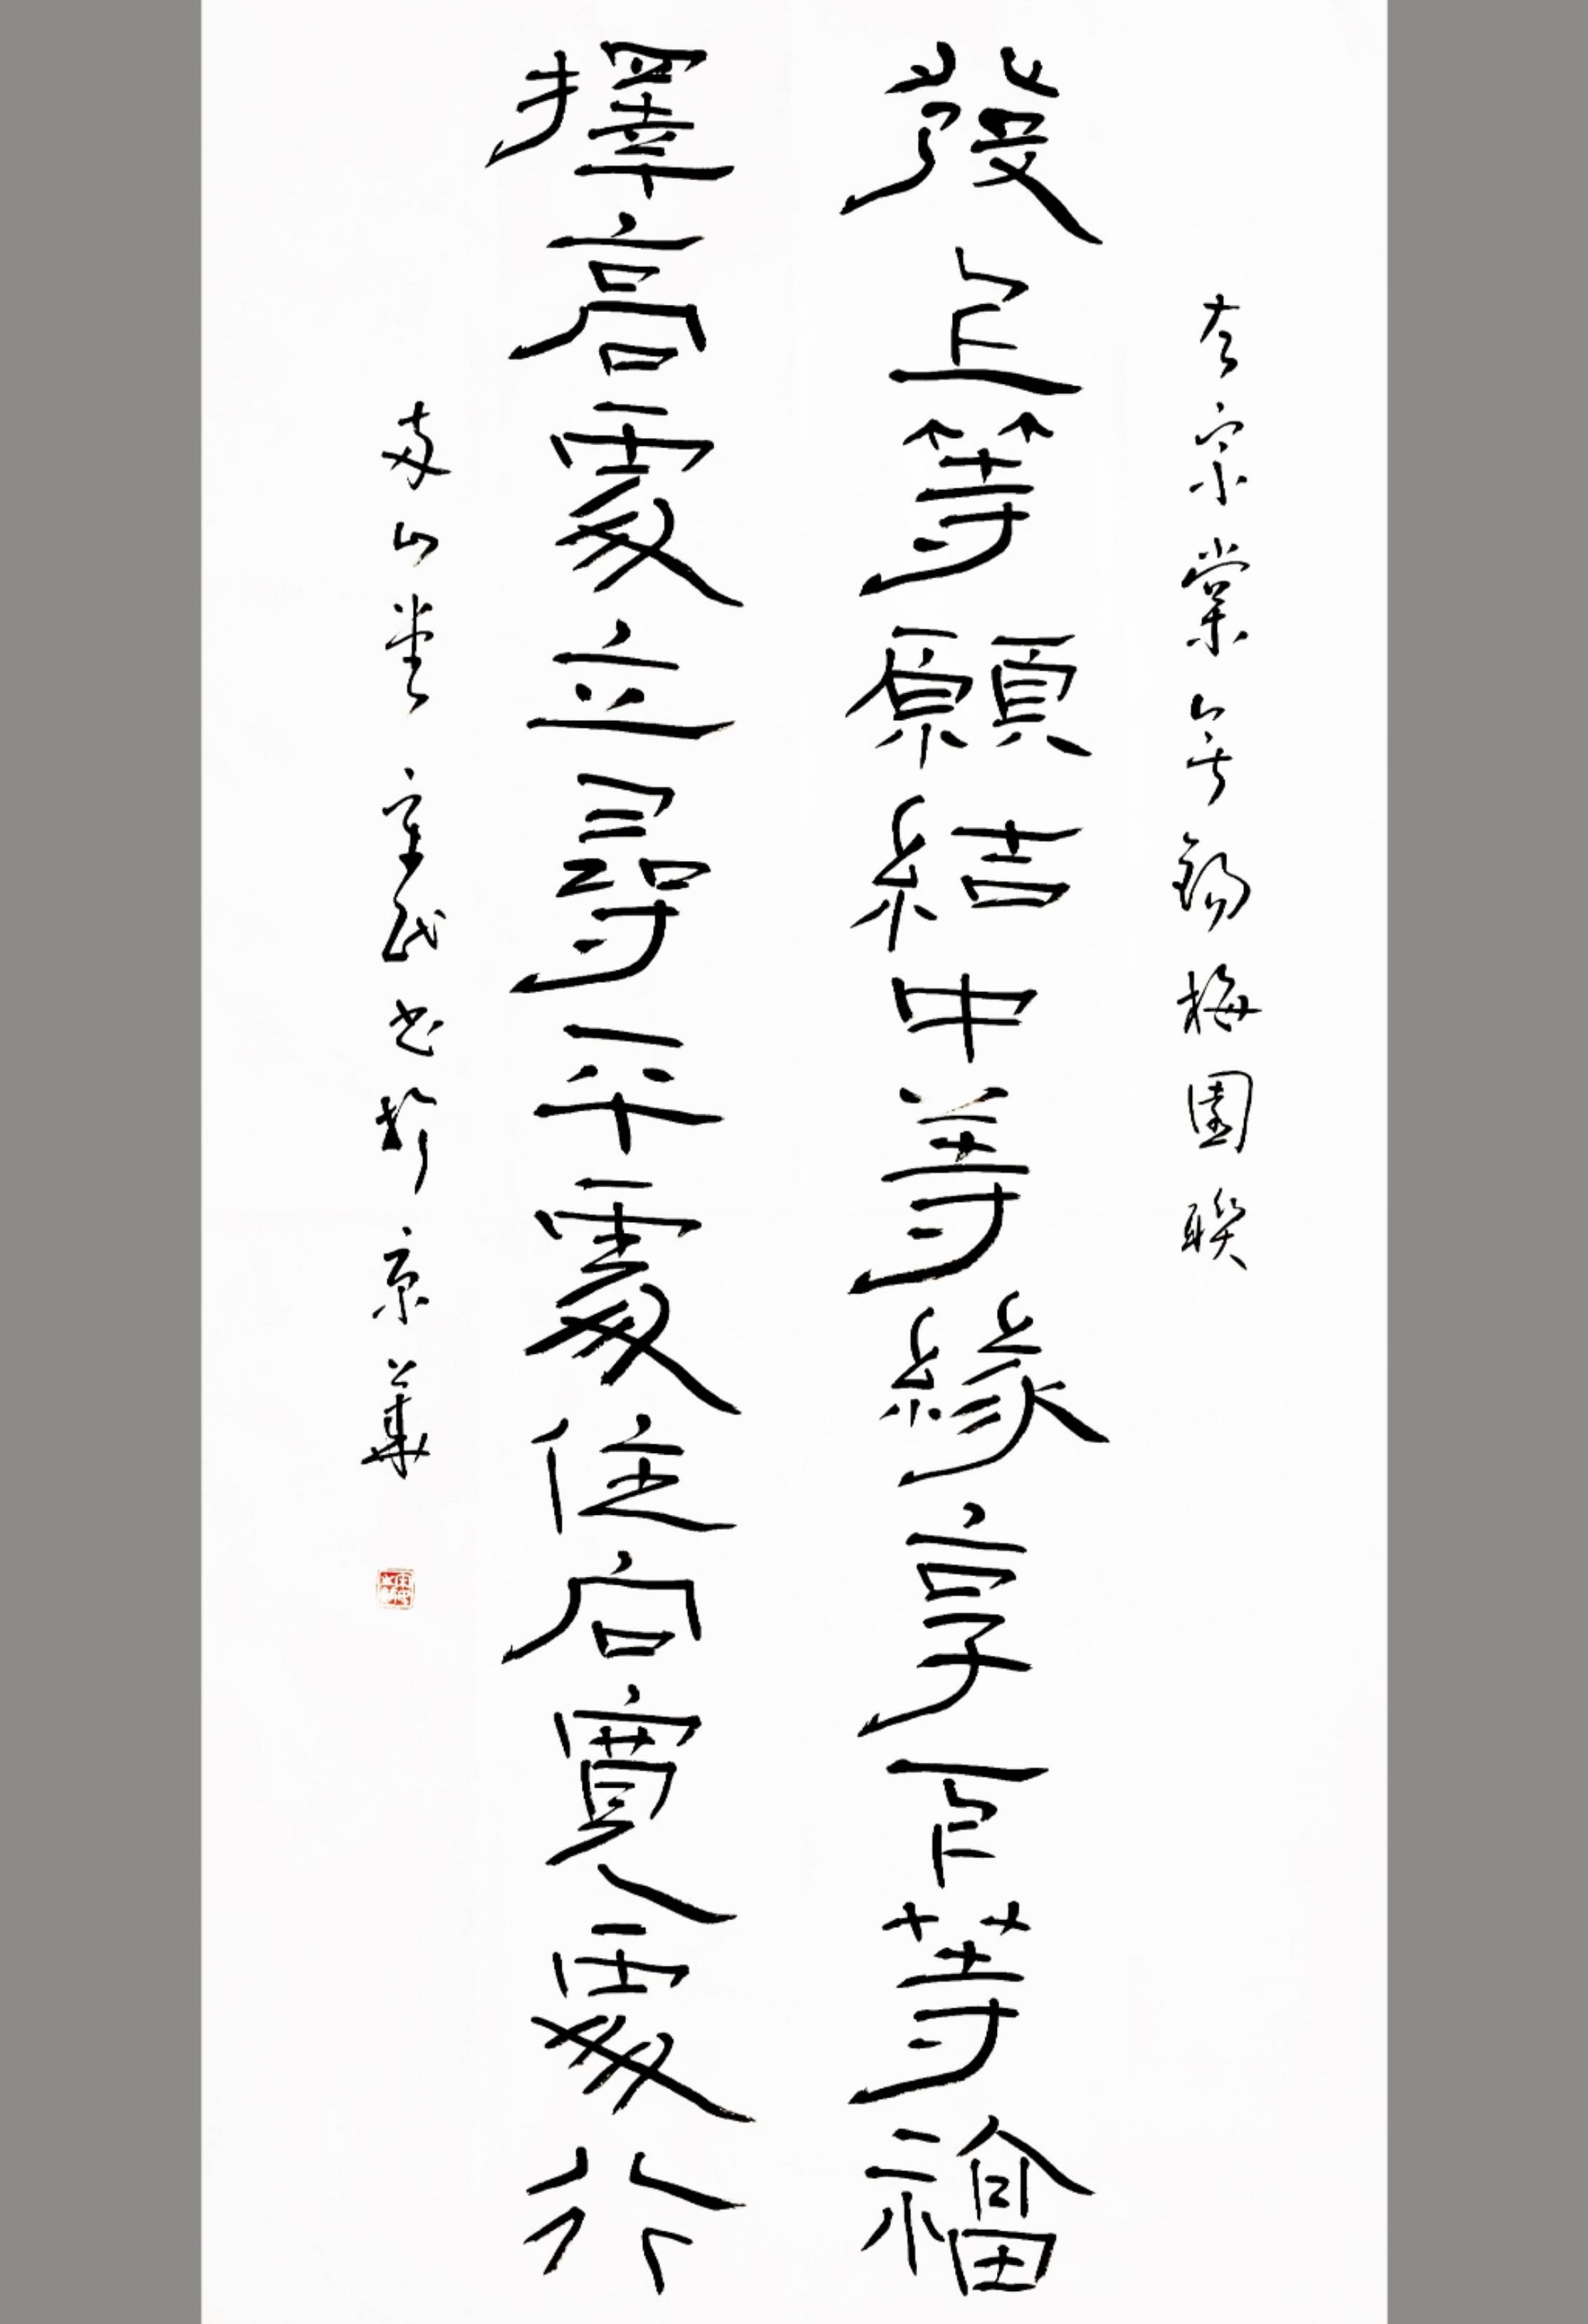 左宗棠無錫梅園聯
發上等願結中等緣享下等福
擇高處立尋平處住向寬處行
山堂書於京華